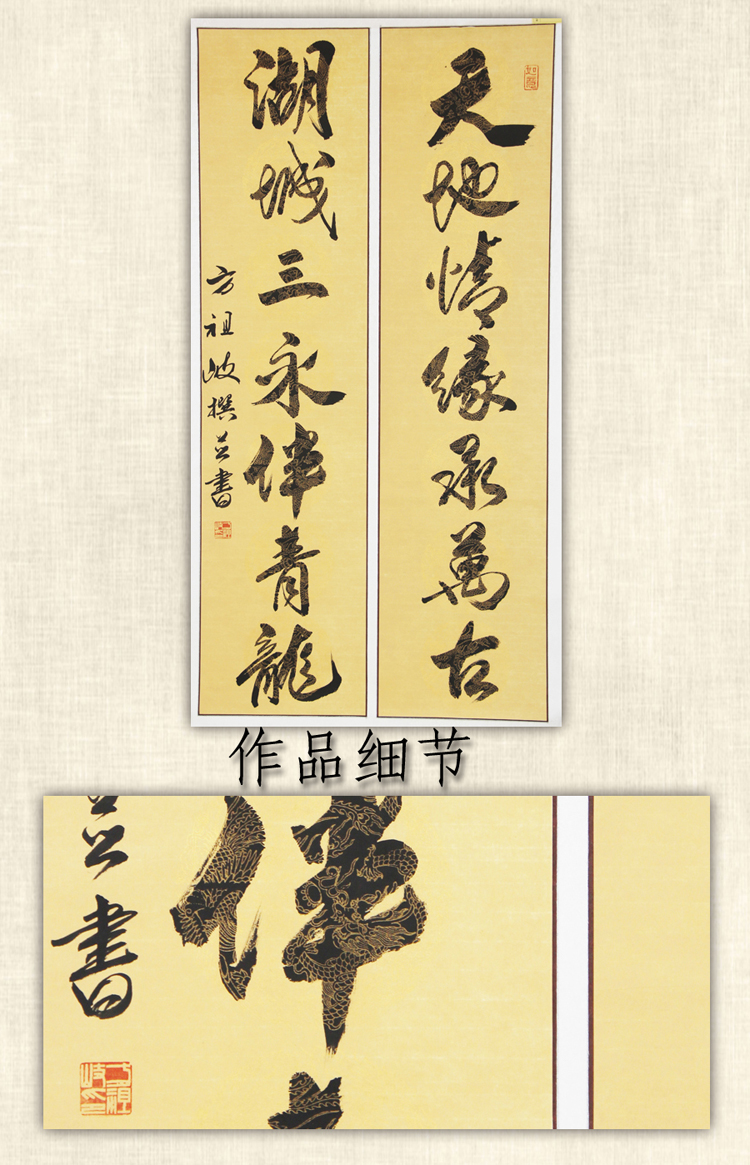 天地情緣承萬古
湖城三永伴青龍
方祖岐撰並書
作品细节
伴
並書
方祖岐印